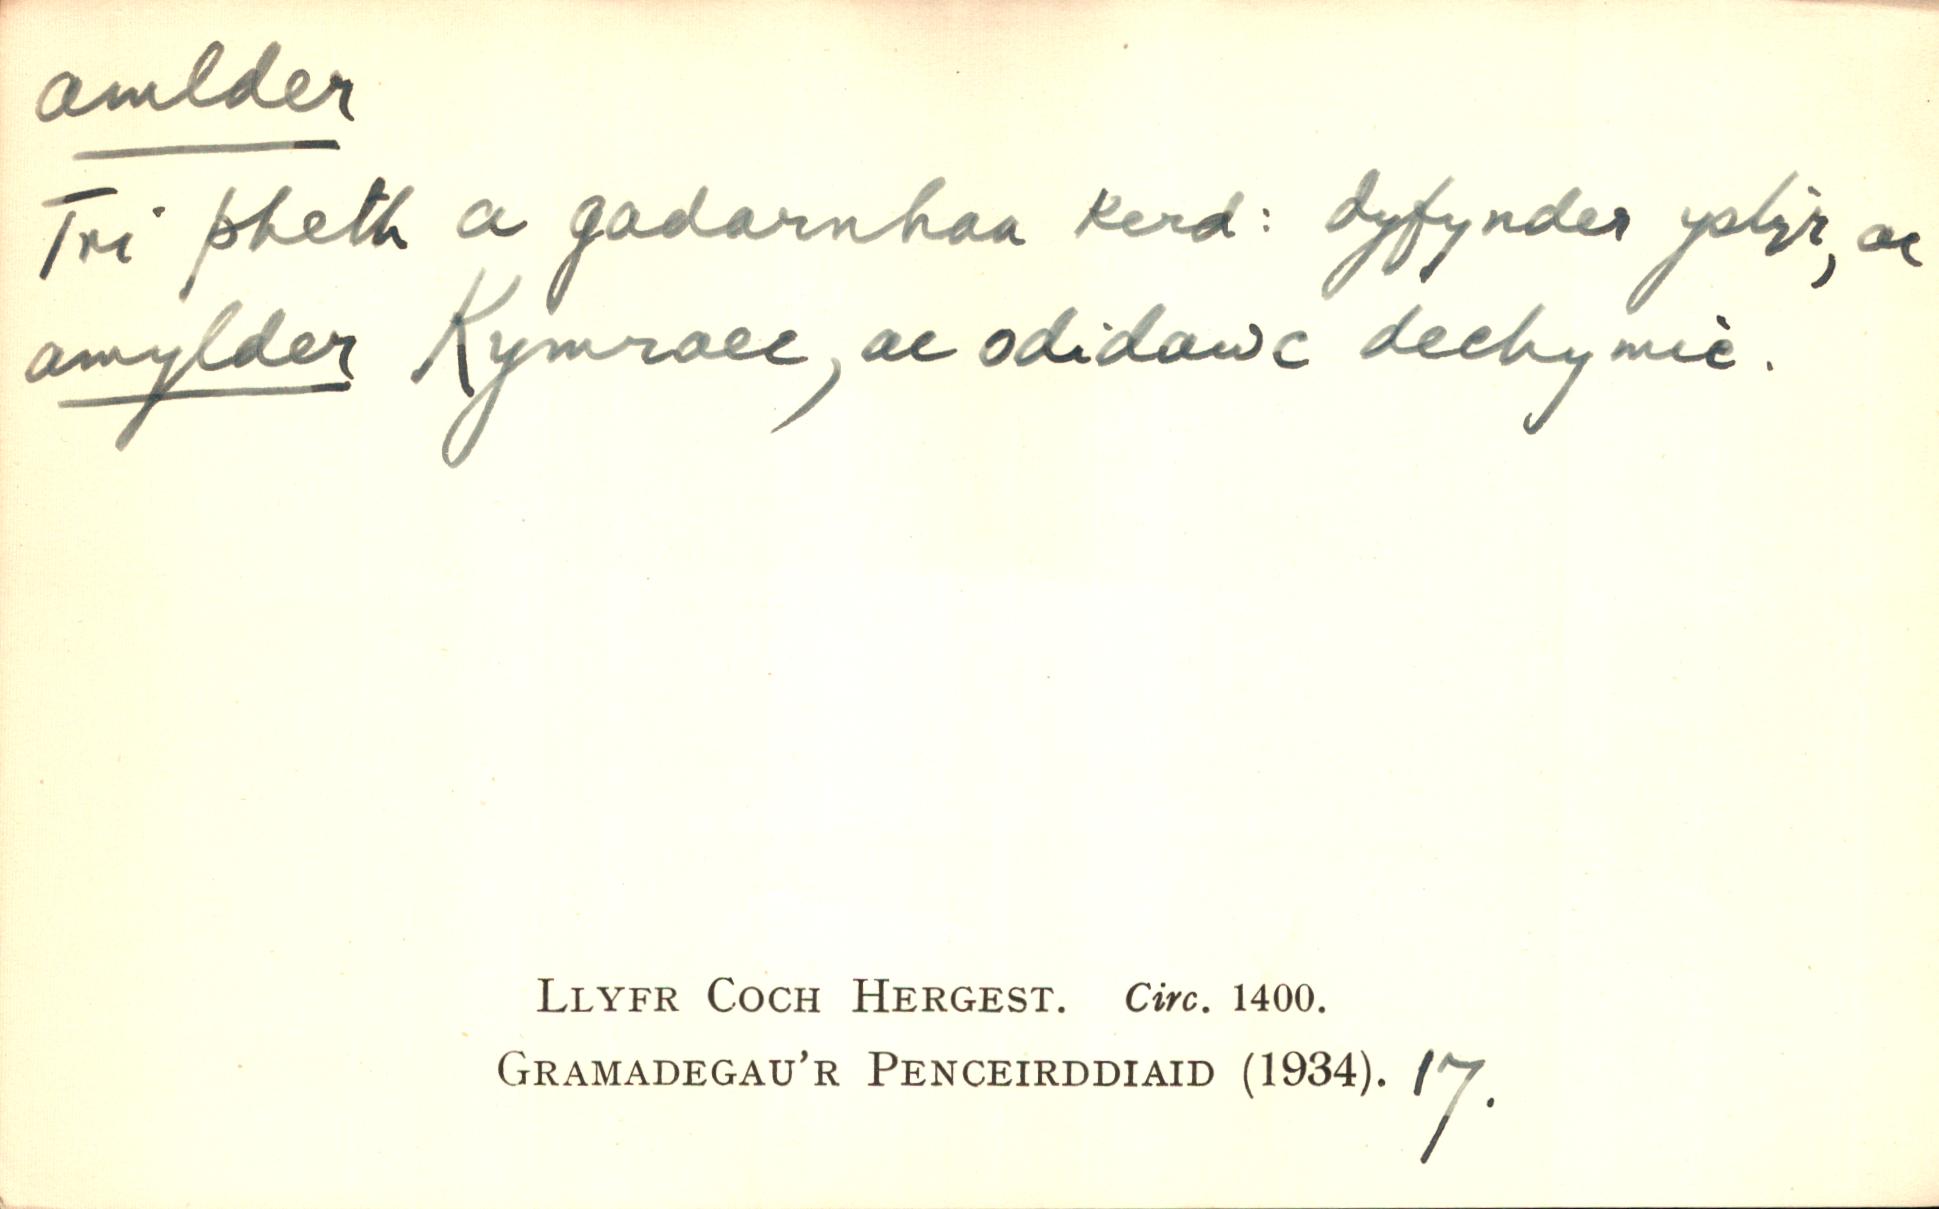 amlder
Tri pheth a gadarnhaa kerd: dyfynder ystyr, ac
amylder Kymraec, ac odidawc dechymic.
LLYFR COCH HERGEST. Circ. 1400.
GRAMADEGAU'R PENCEIRDDIAID (1934). 17.